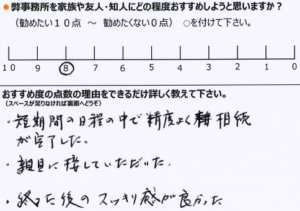 ●弊事務所を家族や友人・知人にどの程度おすすめしようと思いますか？
（勧めたい１０点　～　勧めたくない０点）　○を付けて下さい。
10 9 8 7 6 5 4 3 2 1 0
おすすめ度の点数の理由をできるだけ詳しく教えて下さい。
（スペースが足りなければ裏面へどうぞ）
・短期間の日程の中で精度よく相続
が完了した。
・親身に接していただいた。
・終った後のスッキリ感が良かった